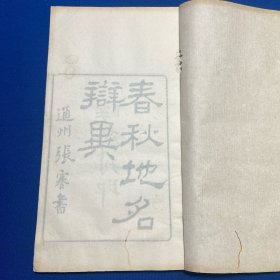 春秋地名
辯異
通州張謇書